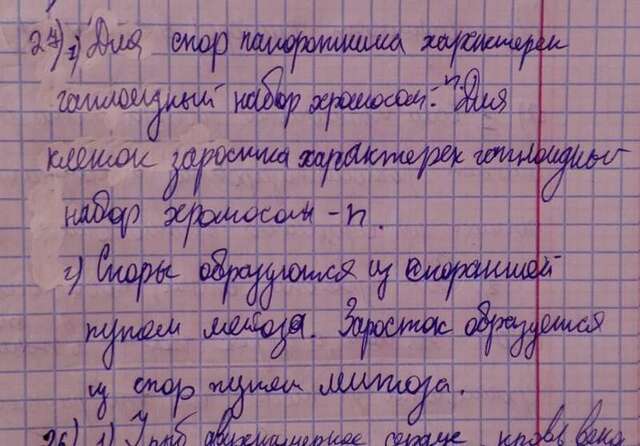 27) 1) Для спор папоротника характерен
гаплоидный набор хромосом - n. Для
клеток заростка характерен гаплоидный
набор хромосом - n.
2) Споры образуются из спорангий
путем мейоза. Заросток образуется
из спор путем митоза.
26) 1) У рыб двухкамерное сердце кровь